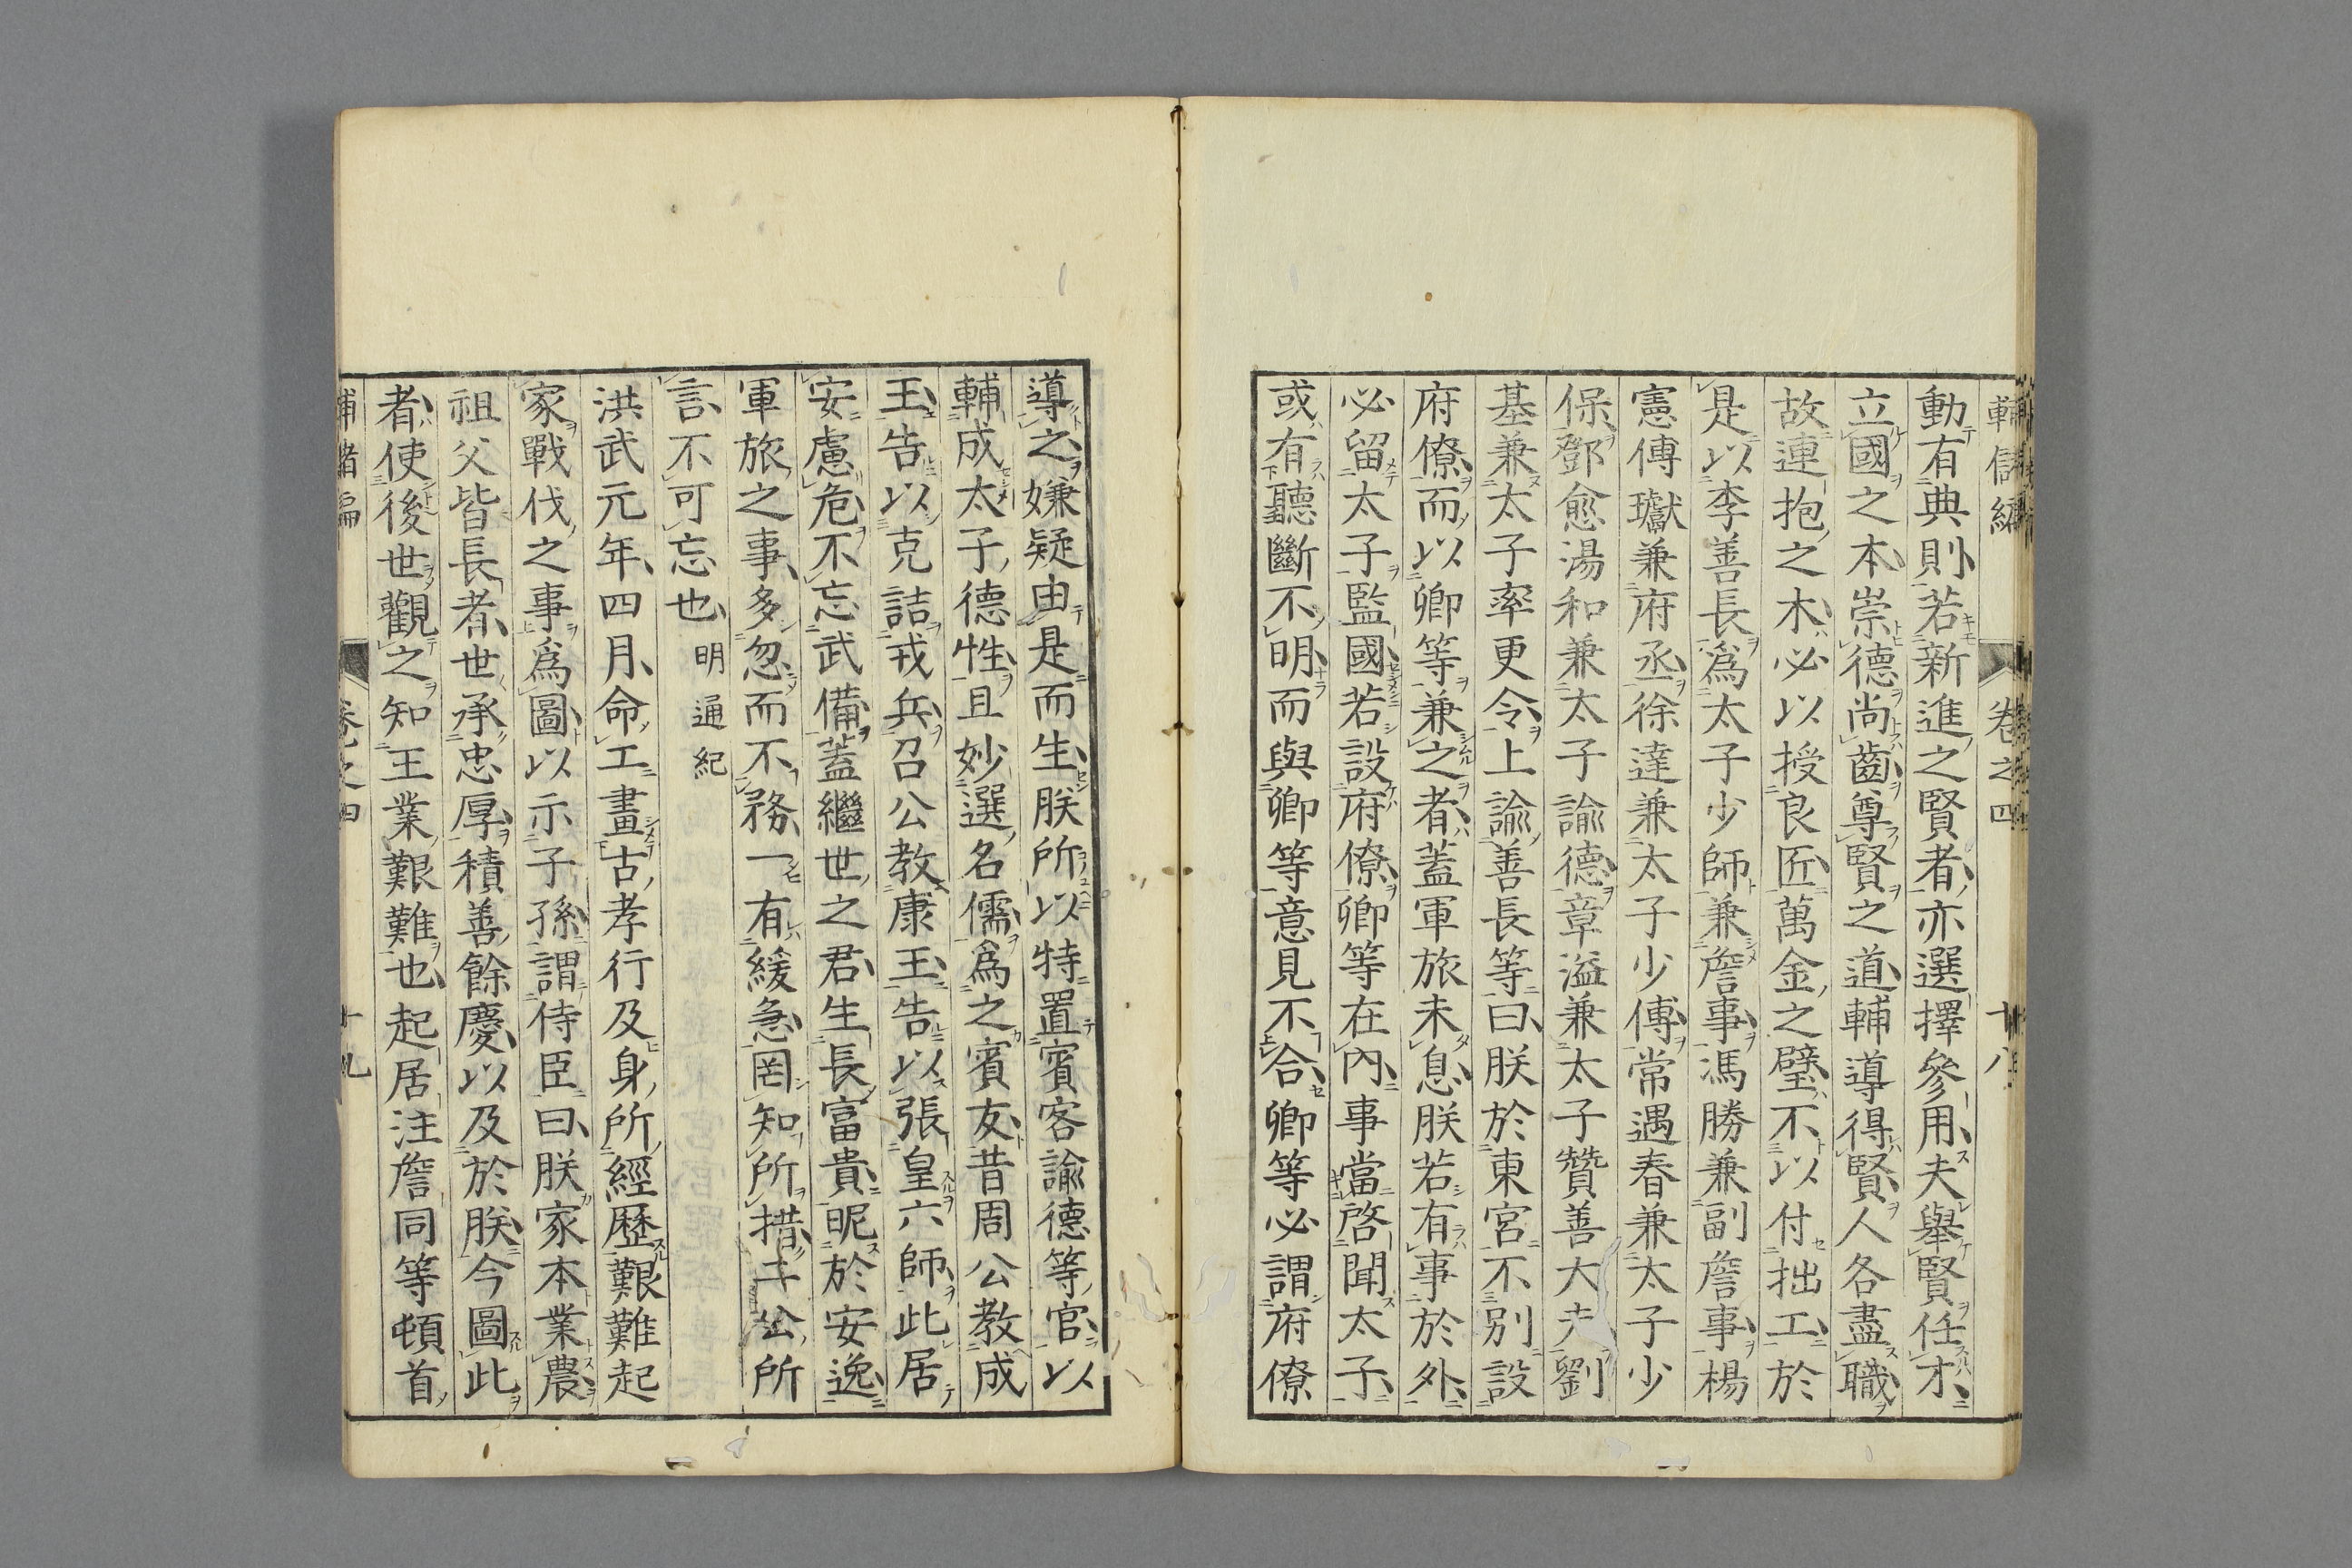 輔儲編 卷之四 十八
動有典則若新進之賢者亦選擇參用夫舉賢任才
立國之本崇德尚齒尊賢之道輔導得賢人各盡職
故連抱之木必以授良匠萬金之璧不以付拙工於
是以李善長爲太子少師兼詹事馮勝兼副詹事楊
憲傅瓛兼府丞徐達兼太子少傅常遇春兼太子少
保鄧愈湯和兼太子諭德章溢兼太子贊善大夫劉
基兼太子率更令上諭善長等曰朕於東宮不別設
府僚而以卿等兼之者蓋軍旅未息朕若有事於外
必留太子監國若設府僚卿等在內事當啓聞太子
或有聽斷不明而與卿等意見不合卿等必謂府僚
導之嫌疑由是而生朕所以特置賓客諭德等官以
輔成太子德性且妙選名儒爲之賓友昔周公教成
王告以克詰戎兵召公教康王告以張皇六師此居
安慮危不忘武備蓋繼世之君生長富貴昵於安逸
軍旅之事多忽而不務一有緩急罔知所措二公所
言不可忘也 明通紀
洪武元年四月命工畫古孝行及身所經歷艱難起
家戰伐之事爲圖以示子孫謂侍臣曰朕家本業農
祖父皆長者世承忠厚積善餘慶以及於朕今圖此
者使後世觀之知王業艱難也起居注詹同等頓首
輔儲編 卷之四 十九